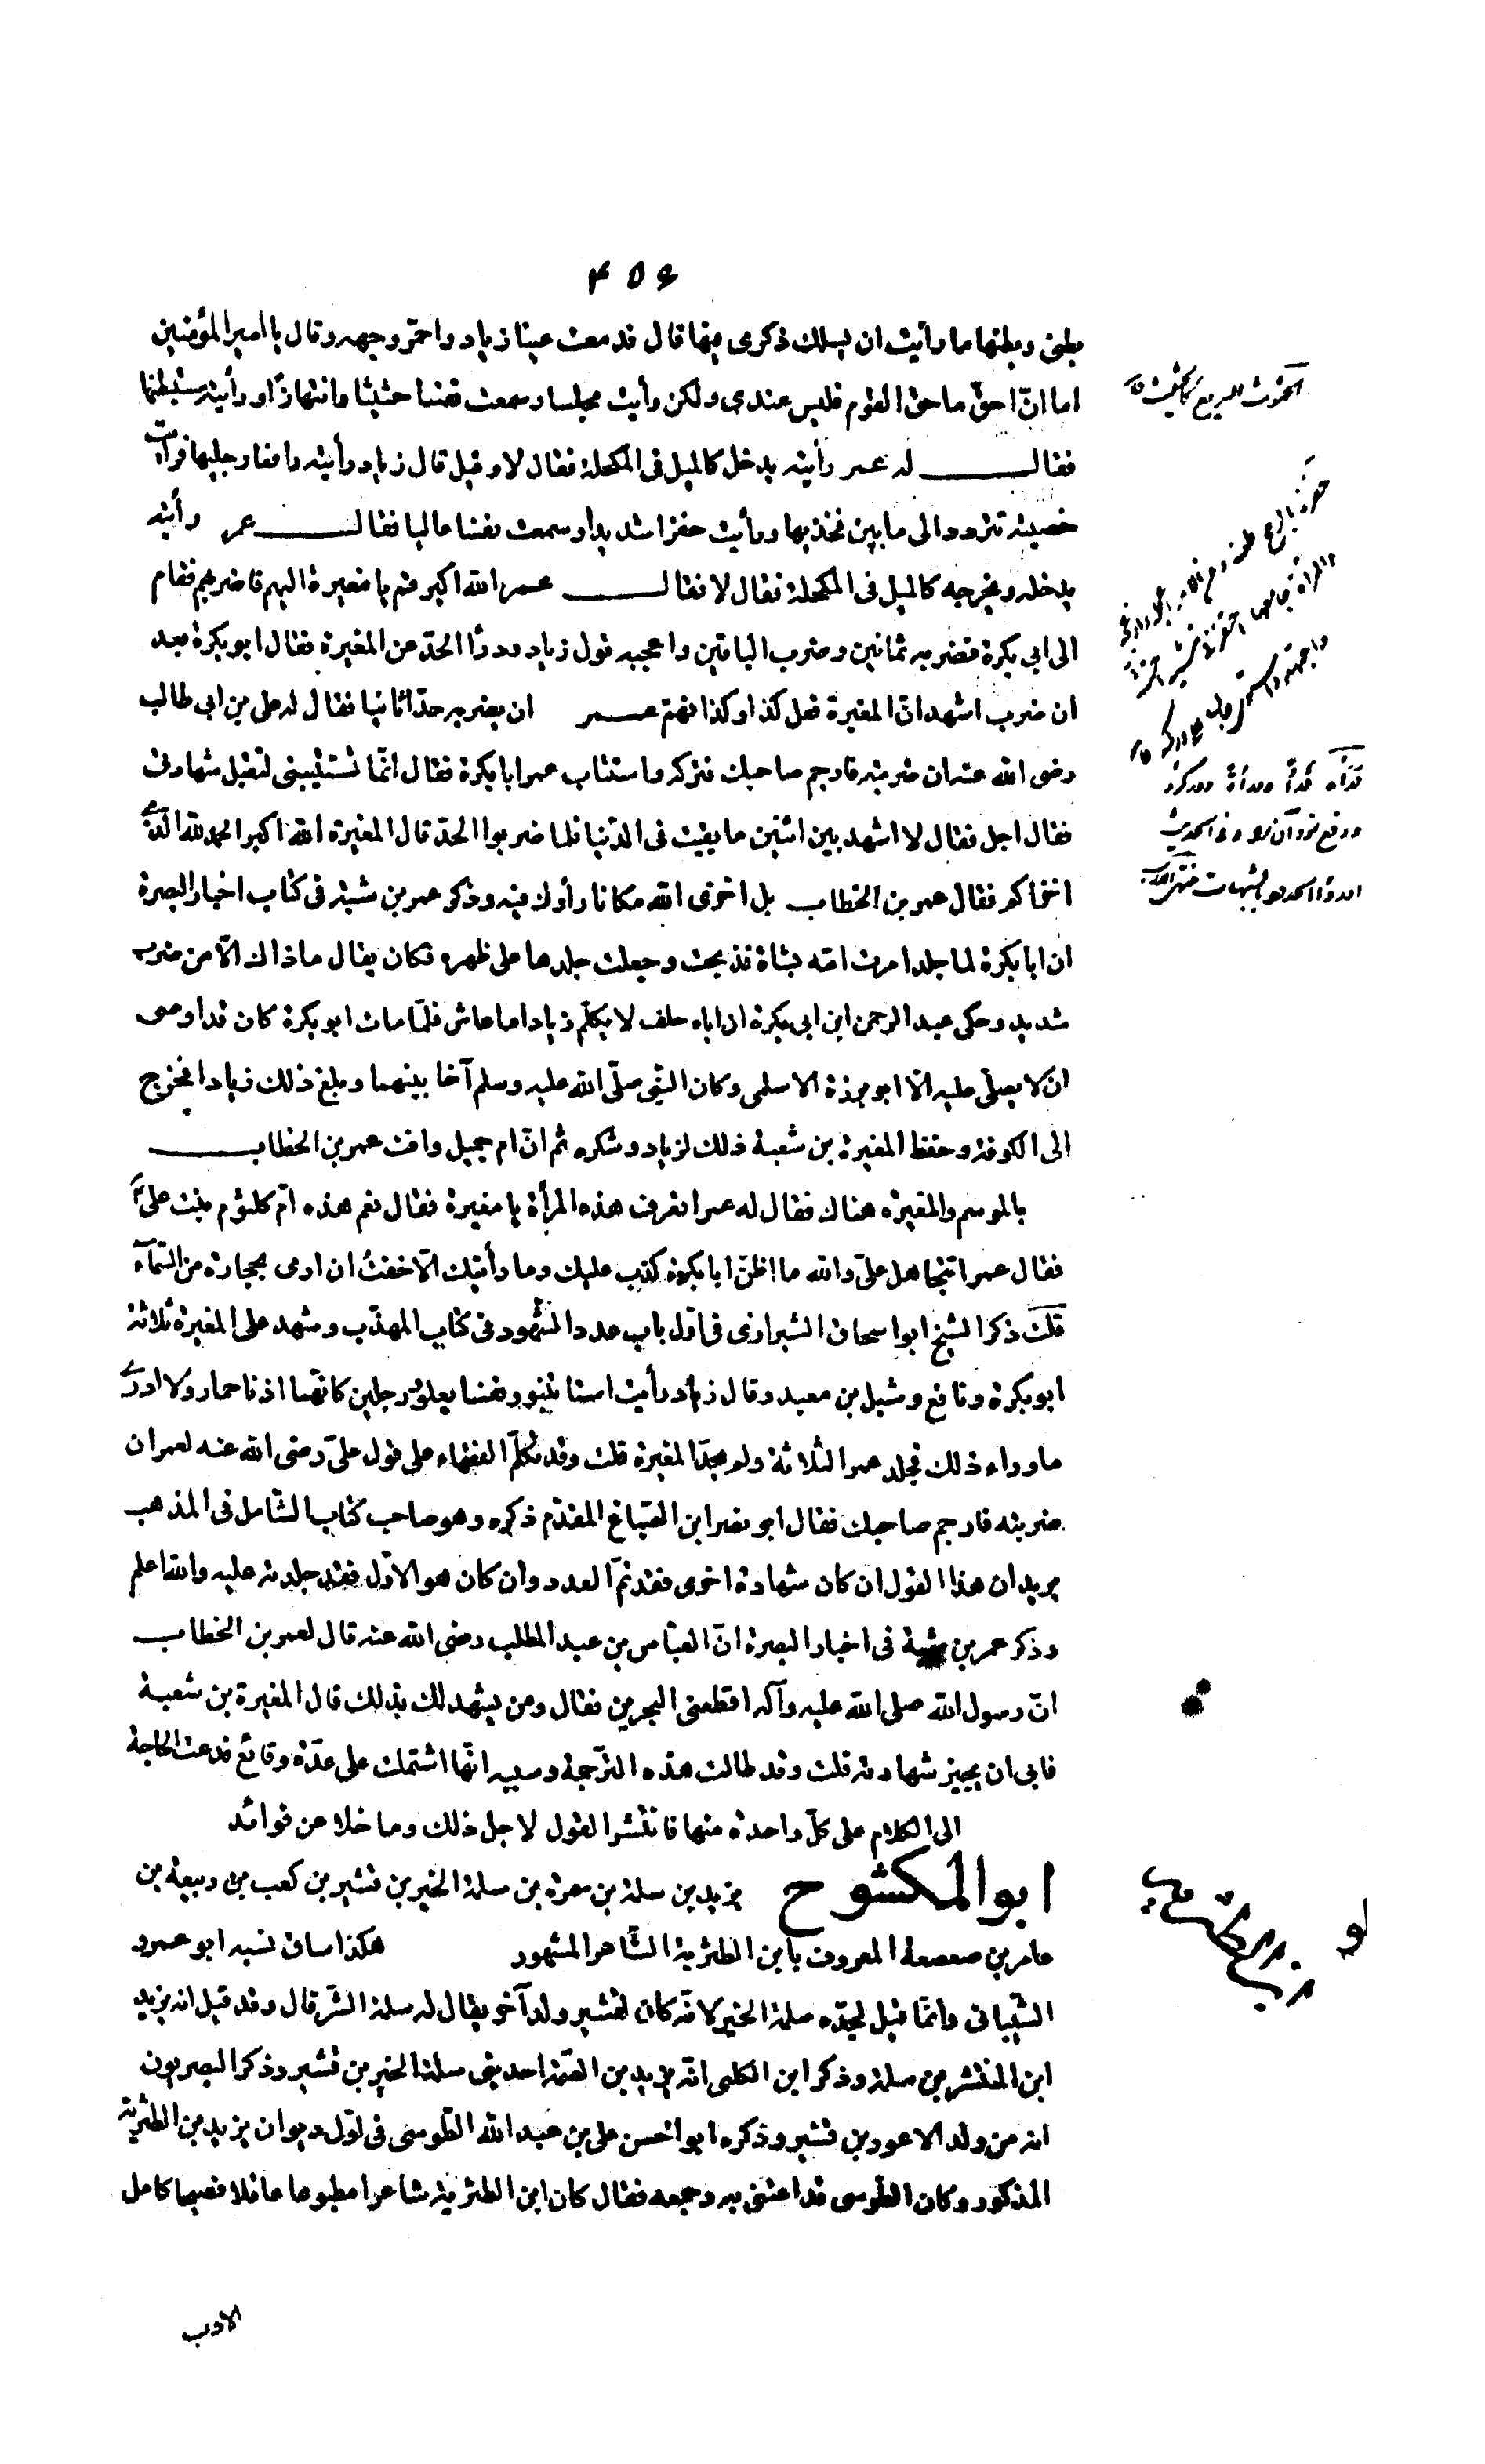 ٤٥٦
بطني وبطنها ما رأيت ان يسلك ذكرى فيها قال فدمعت عينا زياد واحمر وجهه وقال يا امير المؤمنين
اما ان احق ما حق القوم فليس عندى ولكن رأيت مجلسا وسمعت نفسا حثيثا وانتهازا ورأيته مستبطنها
فقال له عمر رأيته يدخل كالميل فى المكحلة فقال لا وقيل قال زياد رأيته رافعا رجليها فرأيت
خصيته تتردد الى ما بين فخذيها ورأيت حفزا شديدا وسمعت نفسا عاليا فقال عمر رأيته
يدخله ويخرجه كالميل فى المكحلة فقال لا فقال عمر الله اكبر قم يا مغيرة اليهم فاضربهم فقام
الى ابى بكرة فضربه ثمانين وضرب الباقين واعجبه قول زياد ودرأ الحد عن المغيرة فقال ابو بكرة بعد
ان ضرب اشهد ان المغيرة فعل كذا وكذا فهم عمر ان يضربه حدا ثانيا فقال له على بن ابى طالب
رضى الله عنه ان ضربته فارجم صاحبك فتركه واستتاب عمر ابا بكرة فقال انما تستتيبنى لتقبل شهادتى
فقال اجل فقال لا اشهد بين اثنين ما بقيت فى الدنيا فلما ضربوا الحد قال المغيرة الله اكبر الحمد لله الذى
اخزاكم فقال عمر بن الخطاب بل اخزى الله مكانا رأوك فيه وذكر عمر بن شبة فى كتاب اخبار البصرة
ان ابا بكرة لما جلد امرت امه بشاة فذبحت وجعلت جلدها على ظهره فكان يقال ما ذاك الا من ضرب
شديد وحكى عبد الرحمن ابن ابى بكرة ان اباه حلف لا يكلم زيادا ما عاش فلما مات ابو بكرة كان قد اوصى
ان لا يصلى عليه الا ابو برزة الاسلمى وكان النبى صلى الله عليه وسلم آخا بينهما وبلغ ذلك زيادا فخرج
الى الكوفة وحفظ المغيرة بن شعبة ذلك لزياد وشكره ثم ان ام جميل وافت عمر بن الخطاب
بالموسم والمغيرة هناك فقال له عمر اتعرف هذه المرأة يا مغيرة فقال نعم هذه ام كلثوم بنت على
فقال عمر اتتجاهل على والله ما اظن ابا بكرة كذب عليك وما رأيتك الا خفت ان ارمى بحجارة من السماء
قلت ذكر الشيخ ابو اسحاق الشيرازى فى اول باب عدد الشهود فى كتاب المهذب وشهد على المغيرة ثلاثة
ابو بكرة ونافع وشبل بن معبد وقال زياد رأيت استا تنبو ونفسا يعلو ورجلين كانهما اذنا حمار ولا ادرى
ما وراء ذلك فجلد عمر الثلاثة ولم يحد المغيرة قلت وقد تكلم الفقهاء على قول على رضى الله عنه لعمر ان
ضربته فارجم صاحبك فقال ابو نصر ابن الصباغ المقدم ذكره وهو صاحب كتاب الشامل فى المذهب
يريد ان هذا القول ان كان شهادة اخرى فقد تم العدد وان كان هو الاول فقد جلدته عليه والله اعلم
وذكر عمر بن شبة فى اخبار البصرة ان العباس بن عبد المطلب رضى الله عنه قال لعمر بن الخطاب
ان رسول الله صلى الله عليه وآله اقطعنى البحرين فقال ومن يشهد لك بذلك قال المغيرة بن شعبة
فابى ان يجيز شهادته قلت وقد طالت هذه الترجمة وسببه انها اشتملت على عدة وقائع فدعت الحاجة
الى الكلام على كل واحدة منها فانتشر القول لاجل ذلك وما خلا عن فوائد
ابو المكشوح يزيد بن سلمة بن سمرة بن سلمة الخير بن قشير بن كعب بن ربيعة بن
عامر بن صعصعة المعروف بابن الطثرية الشاعر المشهور هكذا ساق نسبه ابو عمرو
الشيبانى وانما قيل لجده سلمة الخير لانه كان لقشير ولد آخر يقال له سلمة الشر قال وقد قيل انه يزيد
ابن المنتشر بن سلمة وذكر ابن الكلبى انه يزيد بن الصمة احد بنى سلمة الخير بن قشير وذكر البصريون
انه من ولد الاعور بن قشير وذكره ابو الحسن على بن عبد الله الطوسى فى اول ديوان يزيد بن الطثرية
المذكور وكان الطوسى قد اعتنى به وجمعه فقال كان ابن الطثرية شاعرا مطبوعا عاقلا فصيحا كامل
الادب
الحثوث السريع كالحثيث